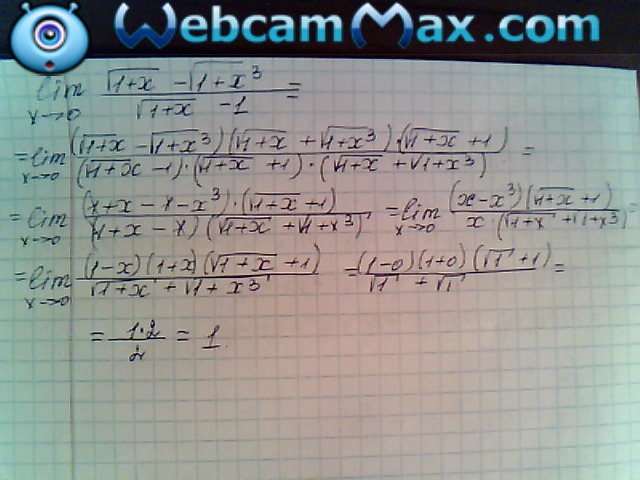 WebcamMax.com
lim x→0 (√1+x − √1+x³)/(√1+x − 1) =
= lim x→0 (√1+x − √1+x³)(√1+x + √1+x³)·(√1+x + 1)/(√1+x − 1)·(√1+x + 1)·(√1+x + √1+x³) =
= lim x→0 (1+x − 1 − x³)·(√1+x + 1)/(1+x − 1)(√1+x + √1+x³) = lim x→0 (x − x³)(√1+x + 1)/x·(√1+x + √1+x³) =
= lim x→0 (1−x)(1+x)(√1+x + 1)/√1+x + √1+x³ = (1−0)(1+0)(√1 + 1)/√1 + √1 =
= 1·2/2 = 1.